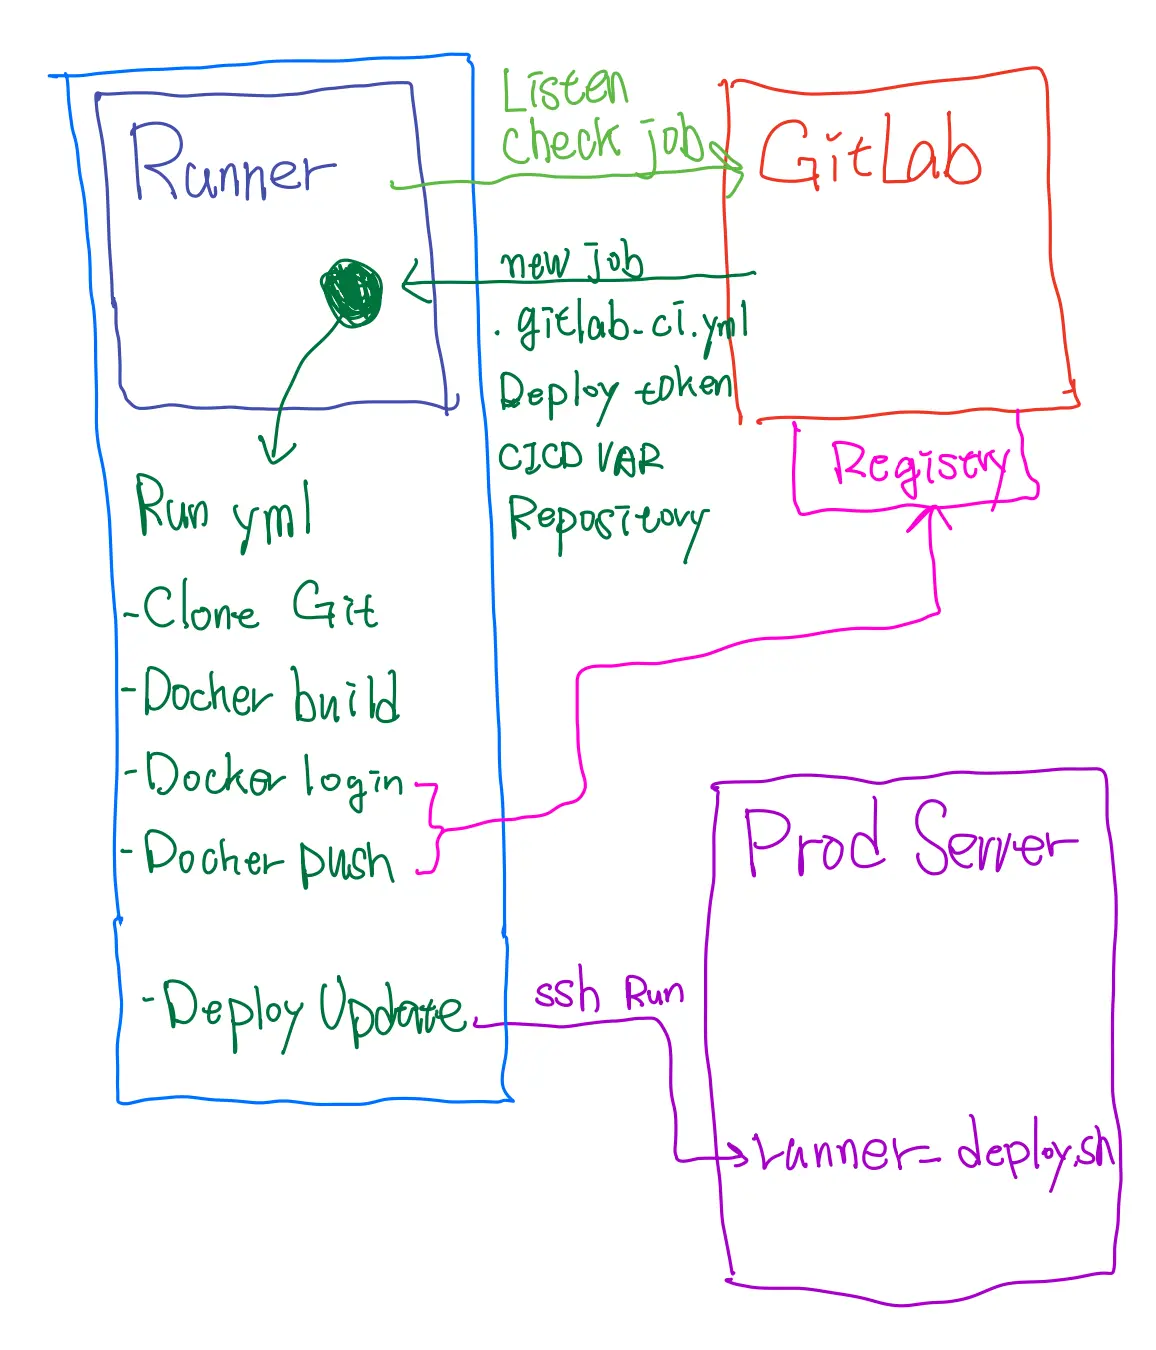 Runner
Listen
check job
GitLab
new job
. gitlab-ci.yml
Deploy token
CICD VAR
Repository
Registry
Run yml
-Clone Git
-Docker build
-Docker login
-Docker push
-Deploy Update
ssh Run
Prod Server
runner-deploy.sh